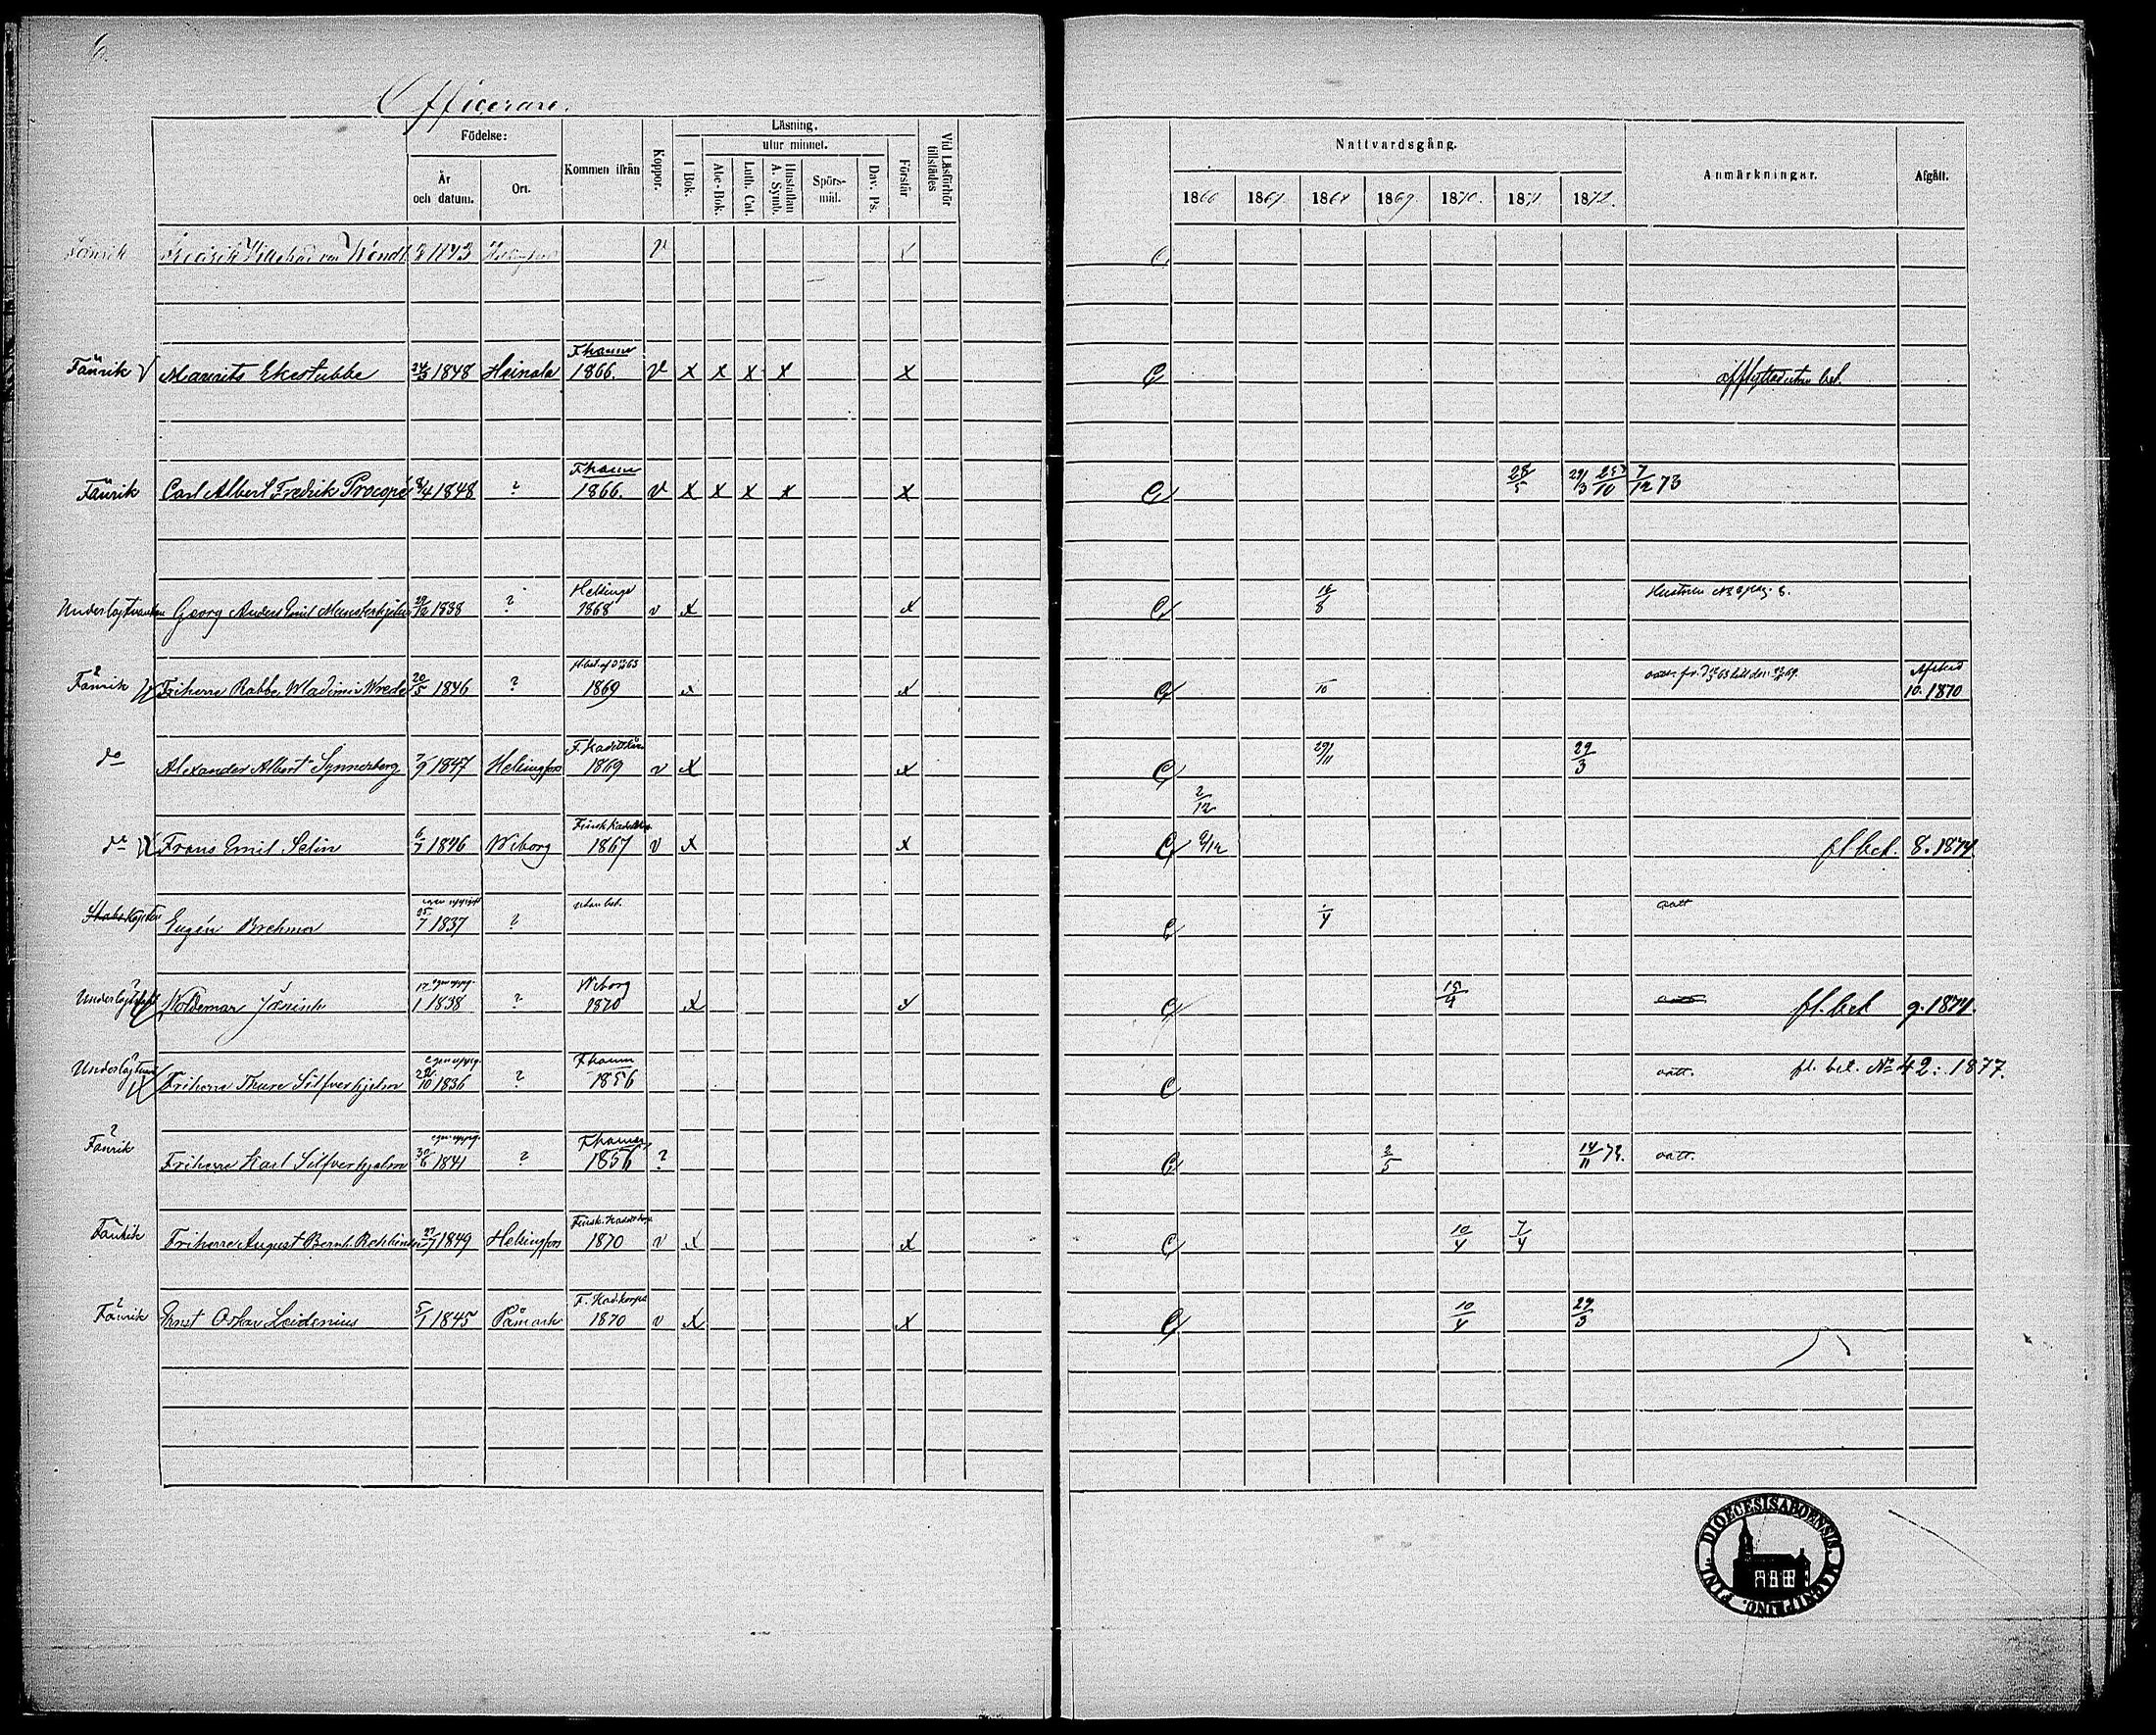 6.
Officerare.
Födelse: Kommen ifrån Koppor. Läsning. Vid Läsförhör tillstädes Nattvardsgång. Anmärkningar. Afgått.
År och datum. Ort. I Bok. utur minnet. Förstår
Abc-Bok. Luth. Cat. Hustaflan A. Symb. Spörs-mål. Dav. Ps. 1866 1867. 1868 1869. 1870. 1871 1872.
von Wendt 1843 v C
F.hamn
Fänrik Maurits Ekestubbe 24/3 1848 Heinola 1866. v x x x x x C
F.hamn 28/5 29/3 7/12 73
Fänrik Carl Albert Fredrik Procopé 1848 ? 1866. v x x x x x C
Helsingf
Georg Anders Emil Munsterhjelm 29/12 1838 ? 1868 v x x C 16/8
Afsked
Fänrik Friherre Rabbe Wladimir Wrede 20/5 1846 ? 1869 x x C 10. 1870
F. Kadettkår 29/11 29/3
do Alexander Albert Synnerberg 7/9 1847 Helsingfors 1869 v x x C
2/12
do Frans Emil Selin 6/7 1846 Wiborg 1867 v x x C 9/12 fl. bet. 8. 1874.
egen uppgift utan bet.
Stabskapten Eugén Brehmer 25/7 1837 ? C /4
17 egen uppg. Wiborg 15/4
Woldemar Jänisch 1 1838 ? 1870 x x C fl. bet 9. 1874.
egen uppg. F.hamn fl. bet. No 42: 1877.
Friherre Thure Silfverhjelm 10 1836 ? 1856 C
egen uppg. F.hamn
Fänrik Friherre Karl Silfverhjelm 30/6 1841 ? 1856 ? C 2/5 14/11 72.
Finsk. Kadettkorps
Fänrik Friherre August Bernh. Rehbinder 27/7 1849 Helsingfors 1870 v x x C 10/4 7/4
F. Kad.korps
Fänrik Ernst Oskar Leidenius 5/1 1845 Påmark 1870 v x x C 10/4 29/3
DIOECESIS ABOENSIS